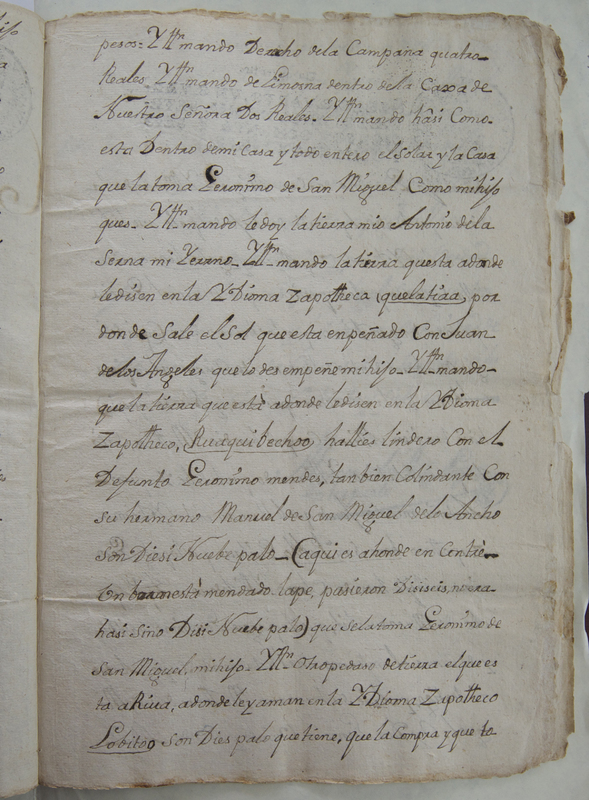 pesos= Yttn mando Derecho dela Campana quatro
Reales Yttn mando de limosna dentro dela Caxa de
Nuestro Señora Dos Reales- Yttn mando hasi Como
esta Dentro demi Casa y todo entero el Solar y la Casa
que la toma Geronimo de San Miguel Como mihiso
ques- Ytt- mando ledoy la tierra mio Antonio dela
Serna mi Yerano- Yttn- mando la tierra questa adonde
ledisen en la YDioma Zapotheca (quelatiraa, por
donde Sale el Sol que esta enpeñado Con Juan
delos Angeles que lo desempeñe mihiso- Yttn- mando-
que la tierra que està adonde ledisen en la YDioma
Zapotheco, Ruaquibechoo hallies lindero Con el
Defunto Geronimo mendes, tanbien Colindante Con
su hermano Manuel de San Miguel delo Ancho
son Diesi Nuebe palo- (aqui es ahonde en Contrè-
en está mendado pasieron Disiseis, noera
hasi Sino Disi Nuebe palo) que se la toma Geronimo de
San Miguel, mihiso- Yttn- otro pedaso de tierra el que es
ta aRiva, adonde leyaman en la YDioma Zapotheco
Lobitoo son Dies palo que tiene, que la Compra y que to